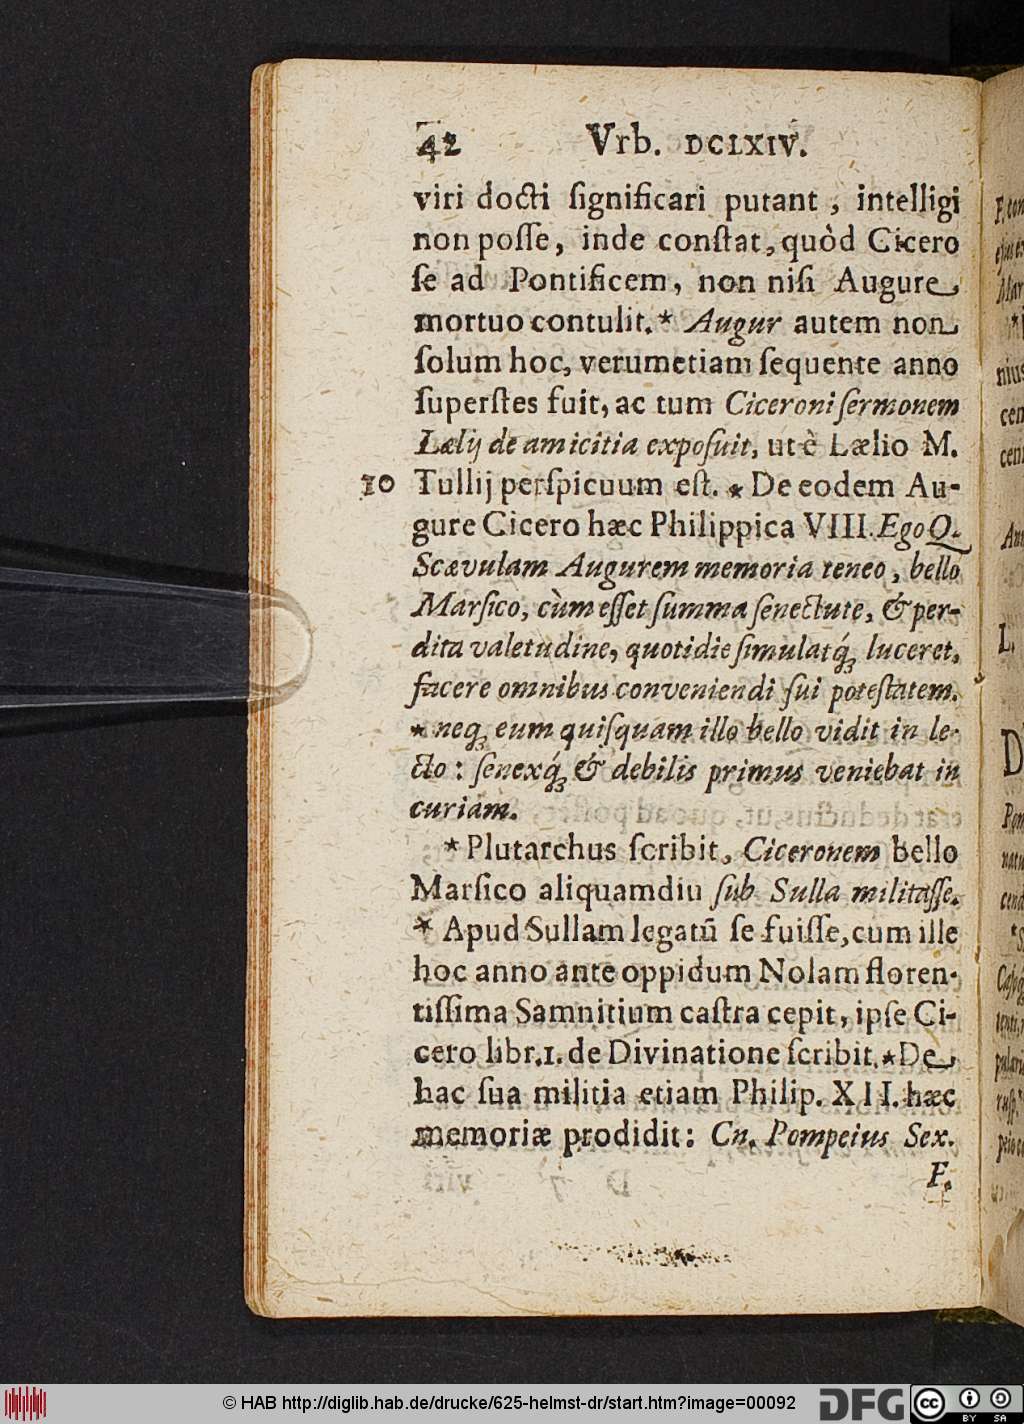 42 Vrb. DCLXIV.
viri docti ſignificari putant, intelligi
non poſſe, inde conſtat, quòd Cicero
ſe ad Pontificem, non niſi Augure
mortuo contulit.* Augur autem non
ſolum hoc, verumetiam ſequente anno
ſuperſtes fuit, ac tum Ciceroni ſermonem
Lælij de amicitia expoſuit, ut è Lælio M.
10 Tullij perſpicuum eſt. * De eodem Au-
gure Cicero hæc Philippica VIII. Ego Q.
Scævulam Augurem memoria teneo, bello
Marſico, cùm eſſet ſumma ſenectute, & per-
dita valetudine, quotidie ſimulatq́; luceret,
facere omnibus conveniendi ſui poteſtatem.
* neq; eum quiſquam illo bello vidit in le-
cto: ſenexq́; & debilis primus veniebat in
curiam.
* Plutarchus ſcribit, Ciceronem bello
Marſico aliquamdiu ſub Sulla militaſſe.
* Apud Sullam legatū ſe fuiſſe, cum ille
hoc anno ante oppidum Nolam floren-
tiſſima Samnitium caſtra cepit, ipſe Ci-
cero libr. 1. de Divinatione ſcribit. * De
hac ſua militia etiam Philip. XII. hæc
memoriæ prodidit: Cn. Pompeius Sex.
F.
© HAB http://diglib.hab.de/drucke/625-helmst-dr/start.htm?image=00092 DFG cc BY SA